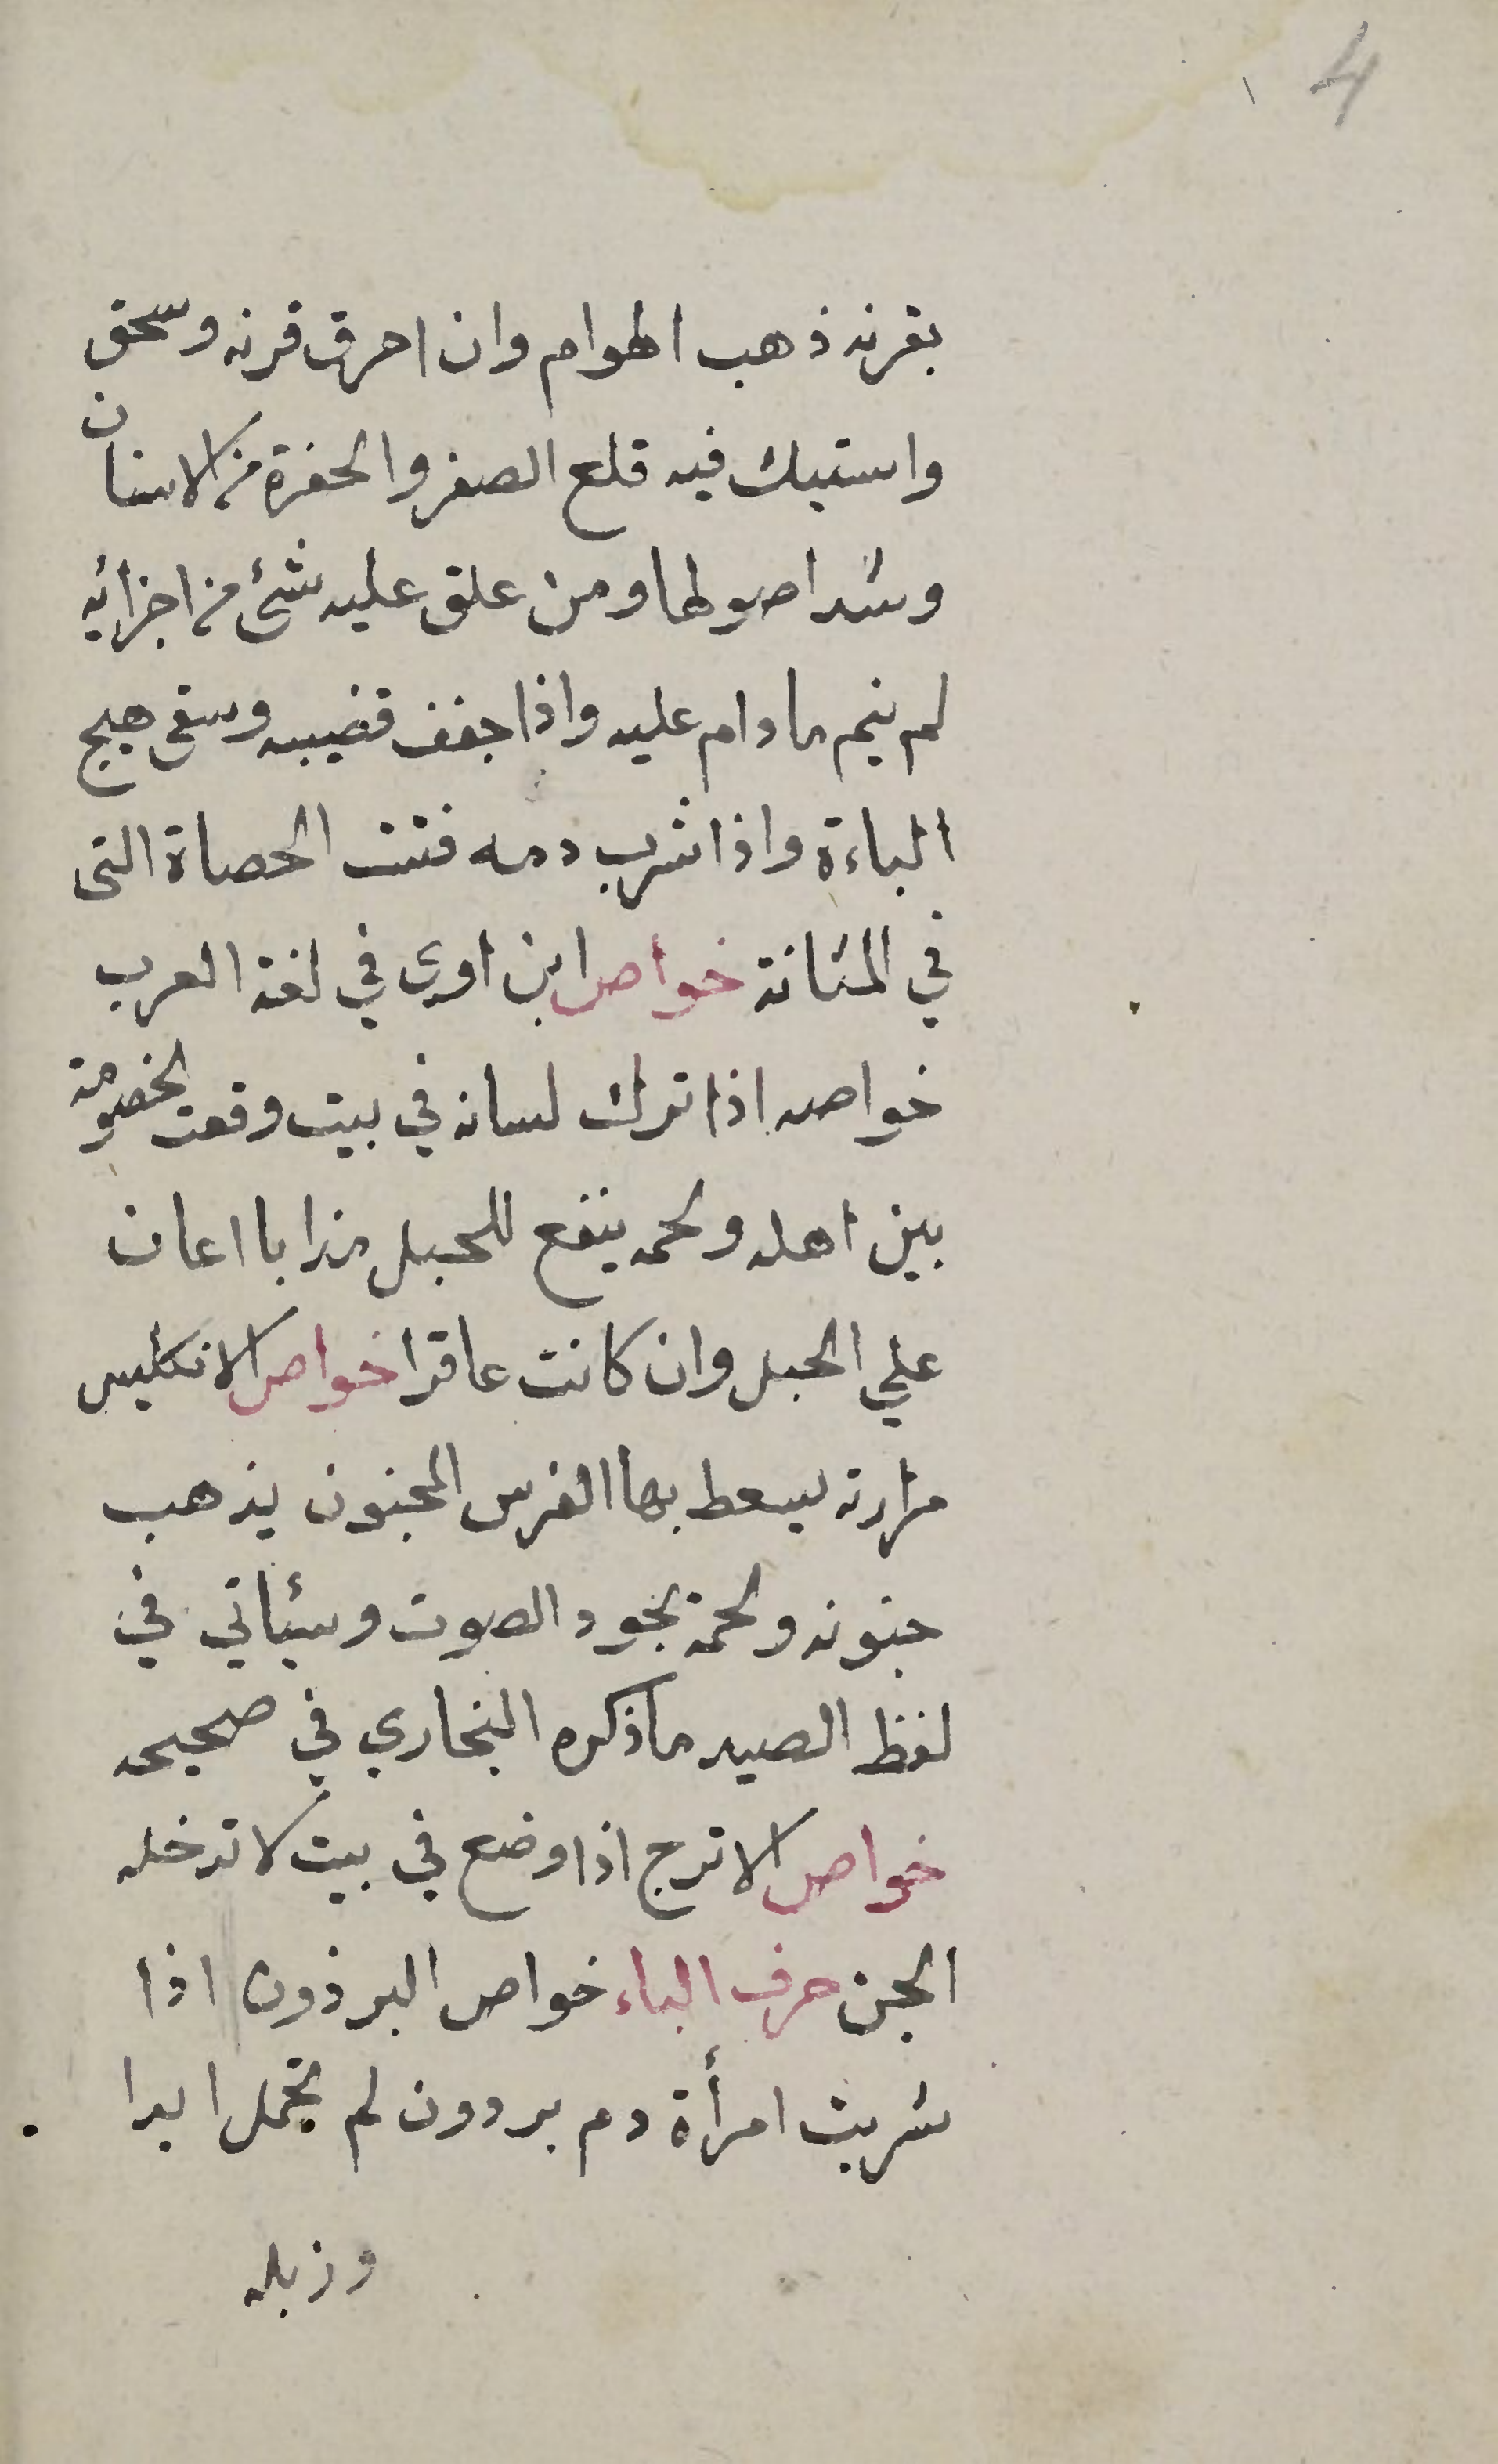 4
بقرنه ذهب الهوام وان احرق قرنه وسحق
واستيك فيه قلع الصفر والحفرة من الاسنان
وشد اصولها ومن علق عليه شئ من اجزائه
لم ينم مادام عليه واذا جفف قضيبه وسقى هيج
الباءة واذا شرب دمه فتت الحصاة التى
في المثانة خواص ابن اوى في لغة العرب
خواصه اذا ترك لسانه في بيت وقعت الخصومة
بين اهله ولحمه ينفع للحبل اعان
علي الحبل وان كانت عاقرا خواص الانكليس
مرارته يسعط بها الفرس المجنون يذهب
جنونه ولحمة يجود الصوت وسيأتي في
لفظ الصيد ماذكره البخاري في صحيحه
خواص الاترج اذا وضع في بيت لا تدخله
الجن حرف الباء خواص البرذون اذا
شربت امرأة دم بردون لم تحمل ابدا
وزبله